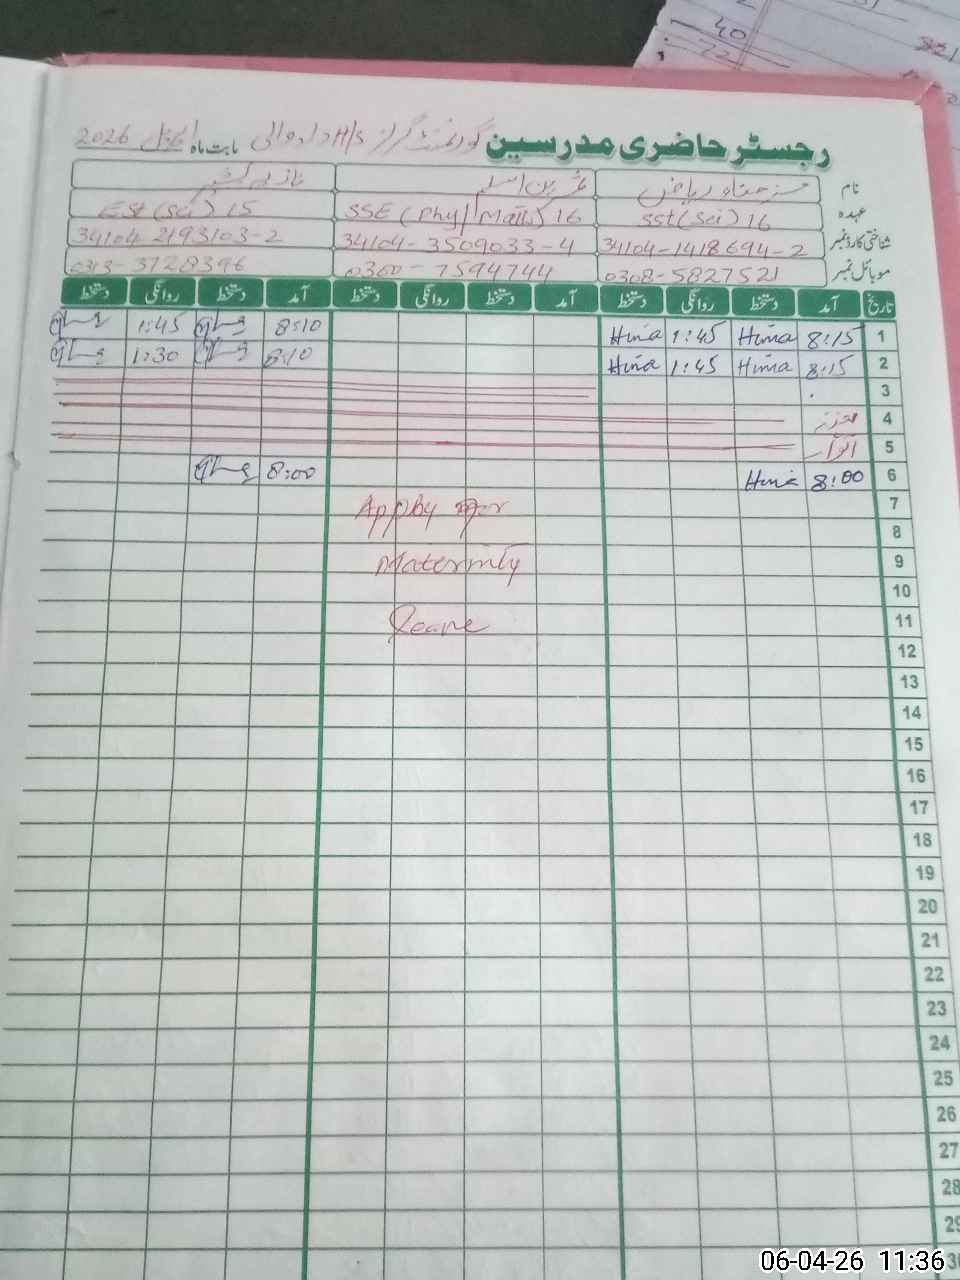 40
22
رجسٹر حاضری مدرسین گورنمنٹ گرلز H/S بابت ماہ اپریل 2026
نام
عہدہ SST (Sci) 16 SSE (Phy/Math) 16 EST (Sci) 15
شناختی کارڈ نمبر 34104-1418694-2 34104-3509033-4 34104-2193103-2
موبائل نمبر 0308-5827521 0300-7594744 0313-3728396
تاریخ آمد دستخط روانگی دستخط آمد دستخط روانگی دستخط آمد دستخط روانگی دستخط
1 8:15 Hina 1:45 Hina 8:10 1:45
2 8:15 Hina 1:45 Hina 8:10 1:30
3
4
5 اتوار
6 8:00 Hina 8:00
7 Apply for
8
9 Maternity
10
11 Leave
12
13
14
15
16
17
18
19
20
21
22
23
24
25
26
27
28
29
30
06-04-26 11:36